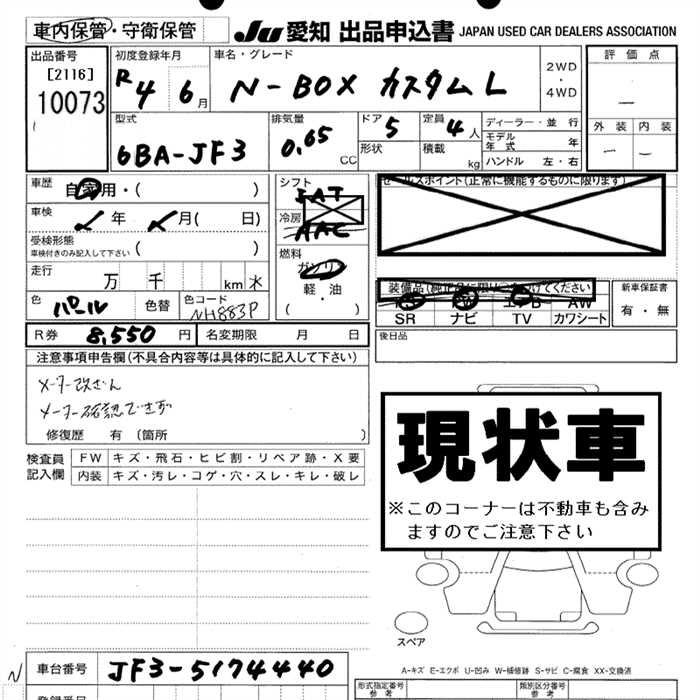 車内保管・守衛保管
Ju 愛知 出品申込書 JAPAN USED CAR DEALERS ASSOCIATION
出品番号
[2116]
10073
初度登録年月
R4 6月
車名・グレード
N-BOX カスタム L
2WD
・
4WD
評価点
—
外装 内装
— —
型式
6BA-JF3
排気量
0.65 CC
ドア 5
形状
定員 4人
積載 kg
ディーラー・並行
モデル年式 年
ハンドル 左・右
車歴
自家用・( )
車検
年 月( 日)
受検形態
車検付きのみ記入して下さい ( )
走行
万 千 km
色 パール
色替
色コード NH883P
シフト
冷房
AAC
燃料
ガソリン
軽・油
( )
セールスポイント(正常に機能するものに限ります)
装備品(純正品に限り○をつけてください)
AW
SR ナビ TV カワシート
新車保証書
有・無
R券 8,550円
名変期限 月 日
後日品
注意事項申告欄(不具合内容等は具体的に記入して下さい)
メーター改ざん
メーター確認できず
修復歴 有 (箇所 )
検査員記入欄
FW キズ・飛石・ヒビ割・リペア跡・X要
内装 キズ・汚レ・コゲ・穴・スレ・キレ・破レ
現状車
※このコーナーは不動車も含み
ますのでご注意下さい
スペア
A-キズ E-エクボ U-凹み W-補修跡 S-サビ C-腐食 XX-交換済
N
車台番号 JF3-5174440
登録番号
形式指定番号
参考
類別区分番号
参考